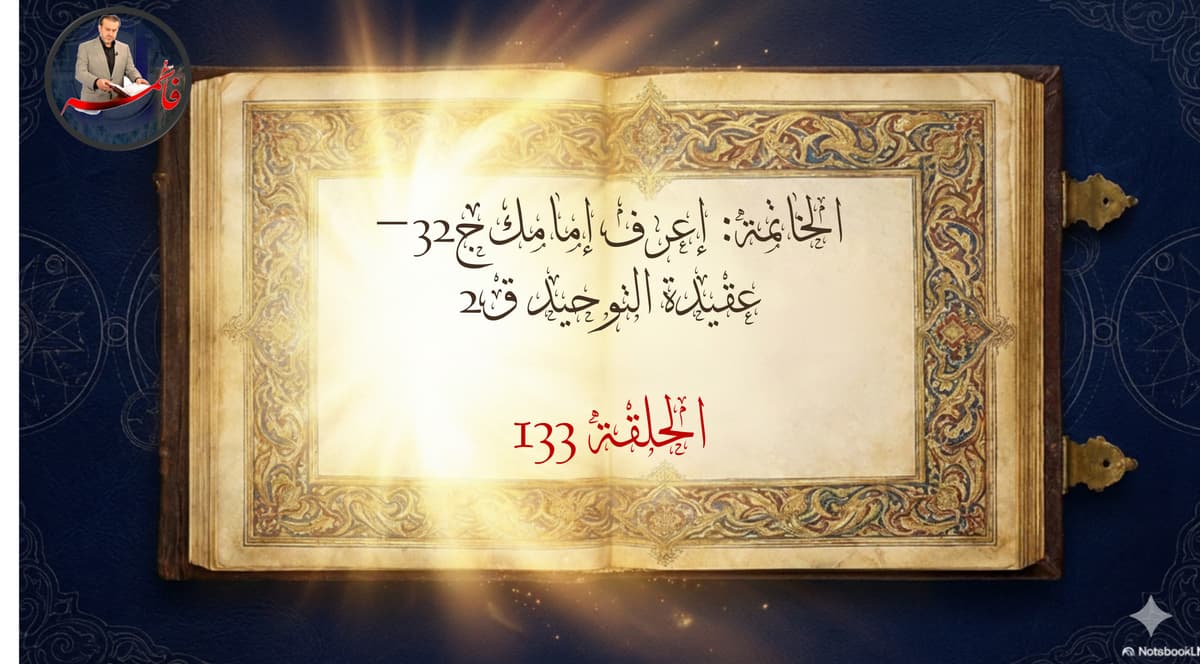 فاطمة
الخاتمة: إعرف إمامك ج32 –
عقيدة التوحيد ق2
الحلقة 133
NotsbookLM